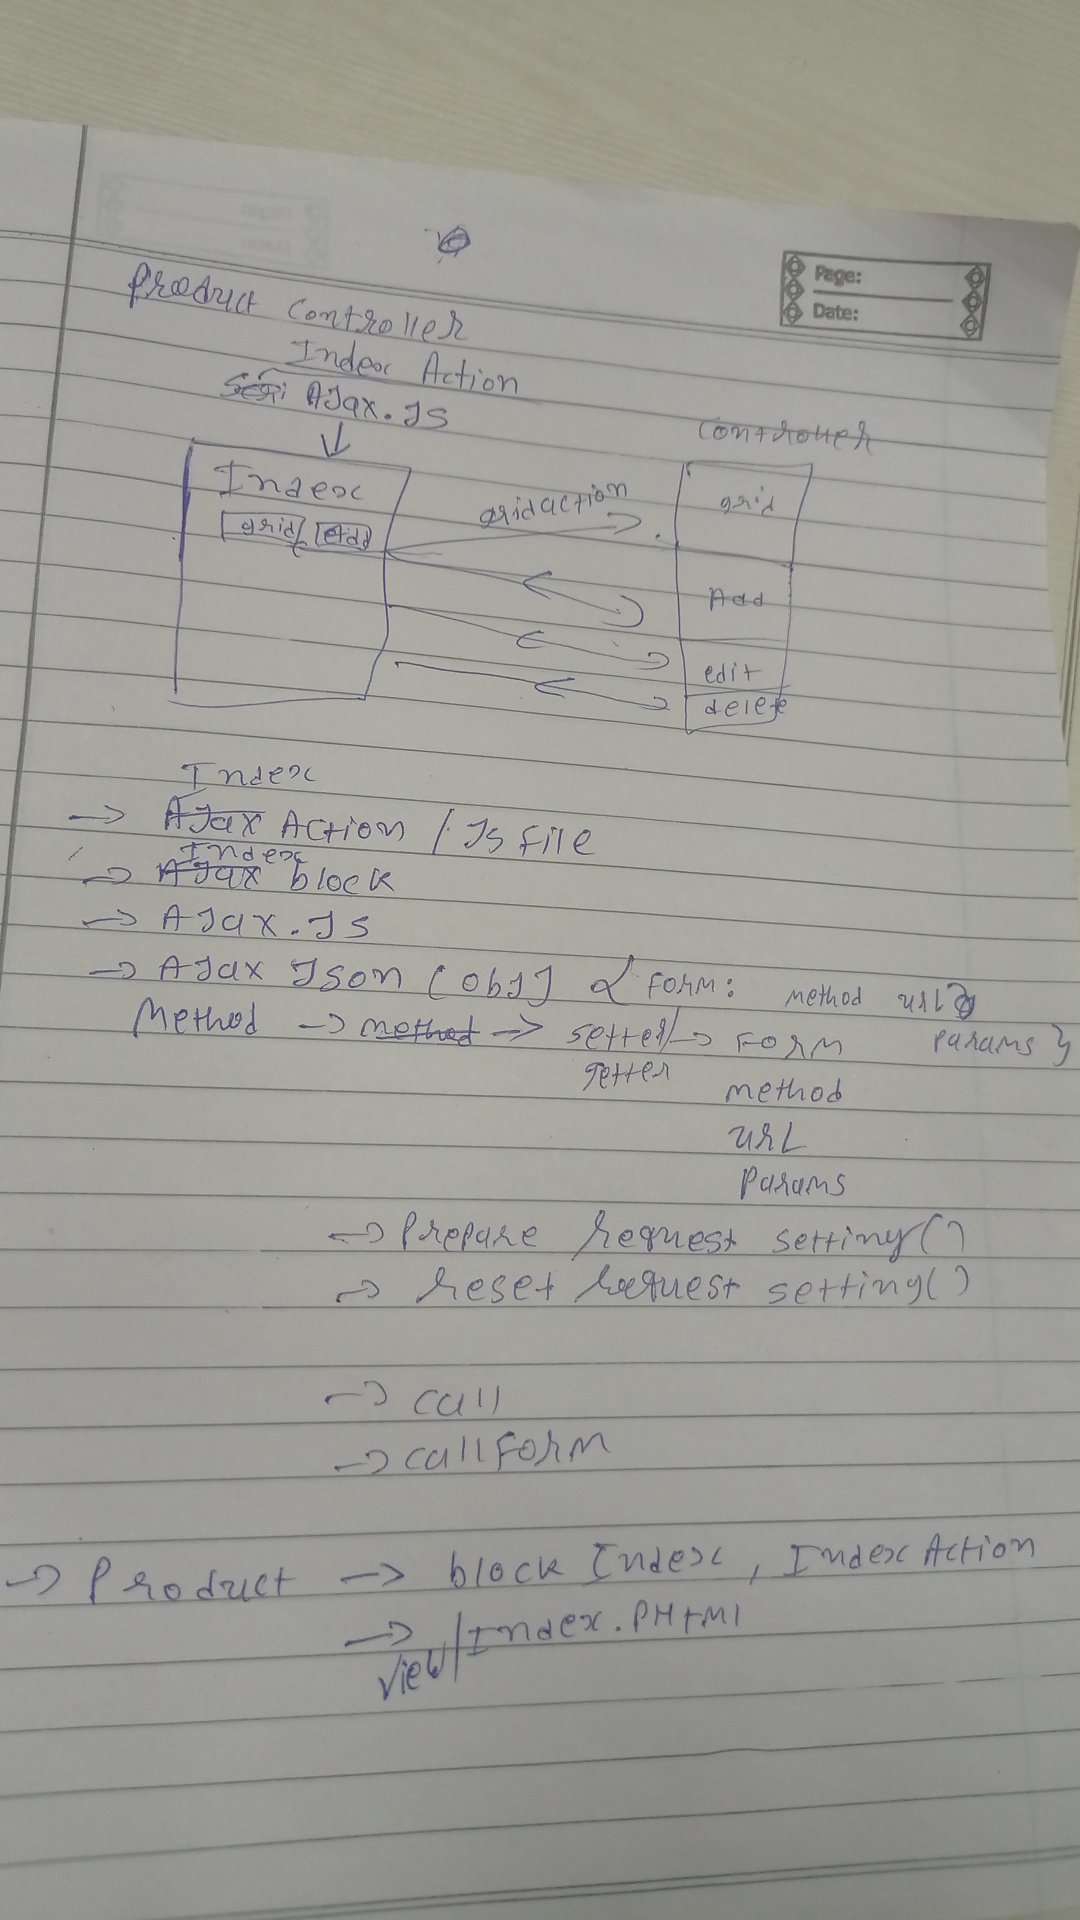 Page:
Date:
Product Controller
Index Action
AJax.JS
Controller
Index
grid Add
gridaction
grid
Add
edit
delete
Index
AJax Action / Js file
Index
AJax block
→ AJax.JS
→ AJax Json [obj] { Form: method url
params }
Method → method → setter/ → Form
getter
method
url
Params
→ Prepare request setting()
→ reset request setting()
→ call
→ callForm
→ Product → block Index, Index Action
→ view/Index.PHtml